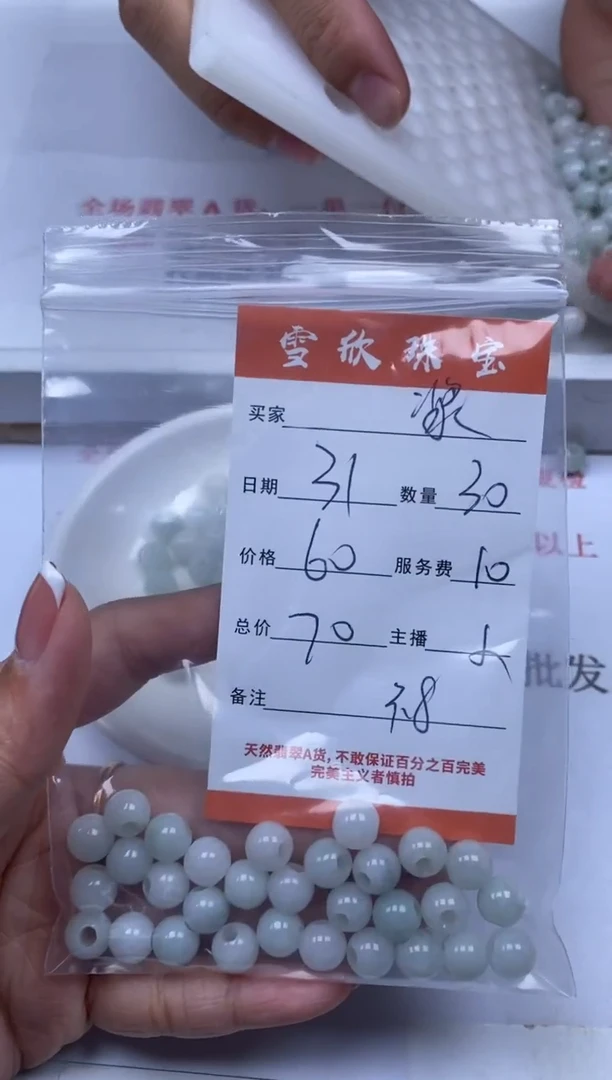 全场翡翠A货
雪欣珠宝
买家
日期 31 数量 30
以上
价格 60 服务费 10
总价 70 主播
批发
备注
天然翡翠A货，不敢保证百分之百完美
完美主义者慎拍